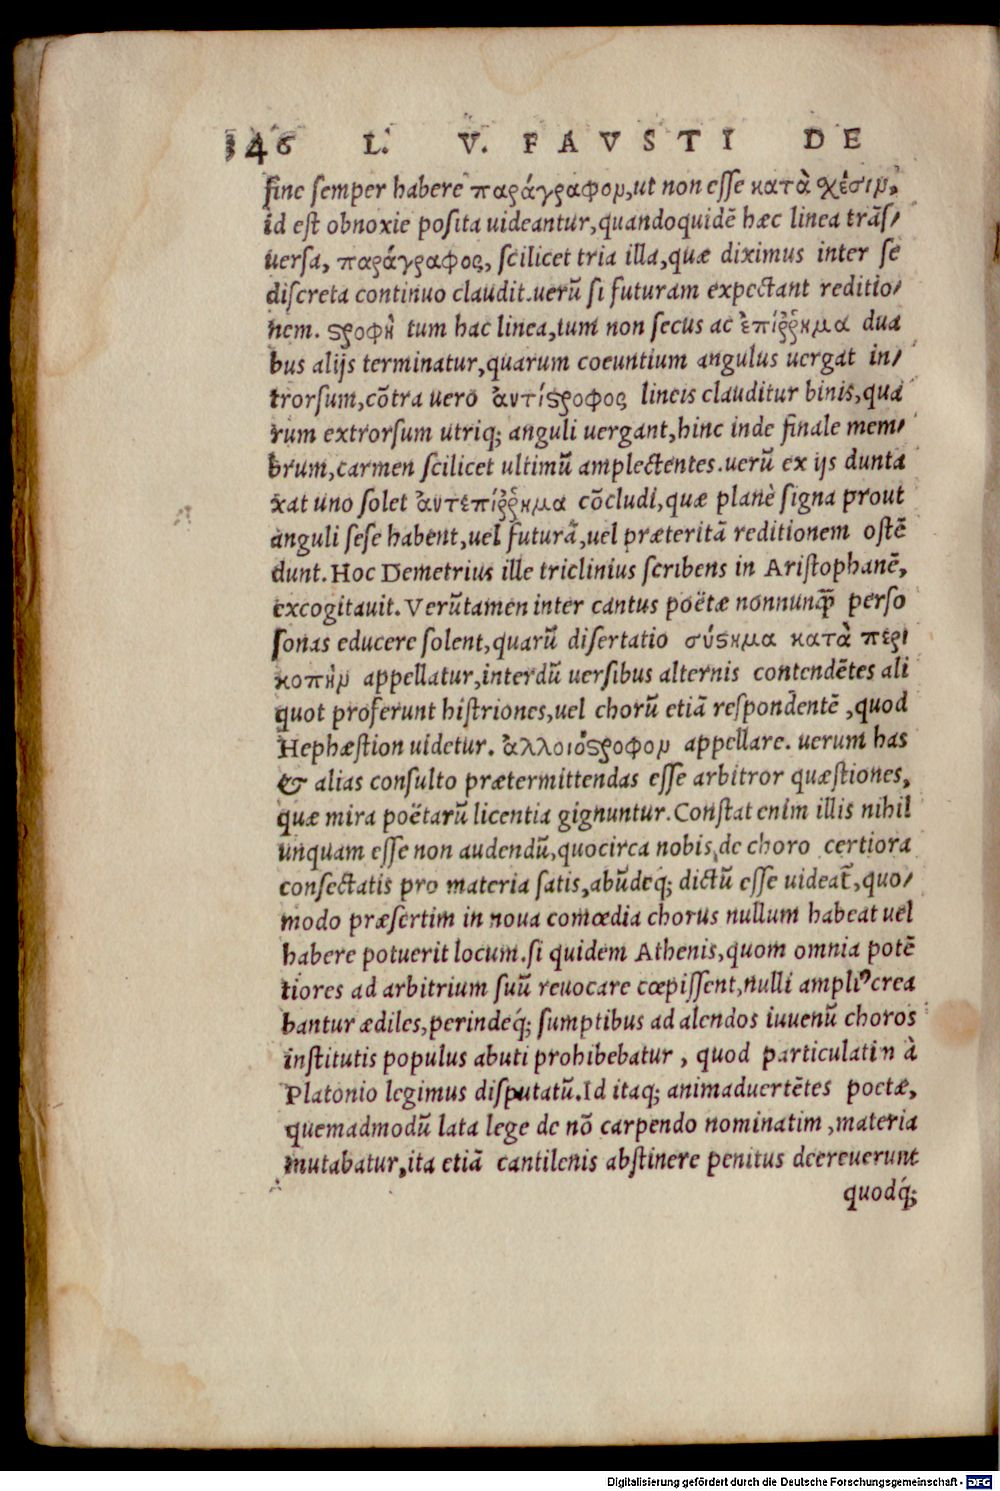 346 L. V. FAVSTI DE
fine semper habere παράγραφον, ut non esse κατὰ χέσιν,
id est obnoxie posita uideantur, quandoquidē hæc linea trās/
uersa, παράγραφος, scilicet tria illa, quæ diximus inter se
discreta continuo claudit. uerū si futuram expectant reditio/
nem. ϛροφὴ tum hac linea, tum non secus ac ἐπίῤῥημα dua
bus alijs terminatur, quarum coeuntium angulus uergat in/
trorsum, cōtra uero ἀντίϛροφος lineis clauditur binis, qua
rum extrorsum utriq; anguli uergant, hinc inde finale mem/
brum, carmen scilicet ultimū amplectentes. uerū ex ijs dunta
xat uno solet ἀντεπίῤῥημα cōcludi, quæ planè signa prout
anguli sese habent, uel futurā, uel præteritā reditionem ostē
dunt. Hoc Demetrius ille triclinius scribens in Aristophanē,
excogitauit. Verūtamen inter cantus poëtæ nonnunq̄ perso
sonas educere solent, quarū disertatio σύϛημα κατὰ περι
κοπὴν appellatur, interdū uersibus alternis contendētes ali
quot proferunt histriones, uel chorū etiā respondentē, quod
Hephæstion uidetur. ἀλλοιόϛροφον appellare. uerum has
& alias consulto prætermittendas esse arbitror quæstiones,
quæ mira poëtarū licentia gignuntur. Constat enim illis nihil
unquam esse non audendū, quocirca nobis de choro certiora
consectatis pro materia satis, abūdeq; dictū esse uideat̄, quo/
modo præsertim in noua comœdia chorus nullum habeat uel
habere potuerit locum. si quidem Athenis, quom omnia potē
tiores ad arbitrium suū reuocare cœpissent, nulli ampliꝰ crea
bantur ædiles, perindeq́; sumptibus ad alendos iuuenū choros
institutis populus abuti prohibebatur, quod particulatin à
Platonio legimus disputatū. Id itaq; animaduertētes poetæ,
quemadmodū lata lege de nō carpendo nominatim, materia
mutabatur, ita etiā cantilenis abstinere penitus decreuerunt
quodq́;
Digitalisierung gefördert durch die Deutsche Forschungsgemeinschaft - DFG